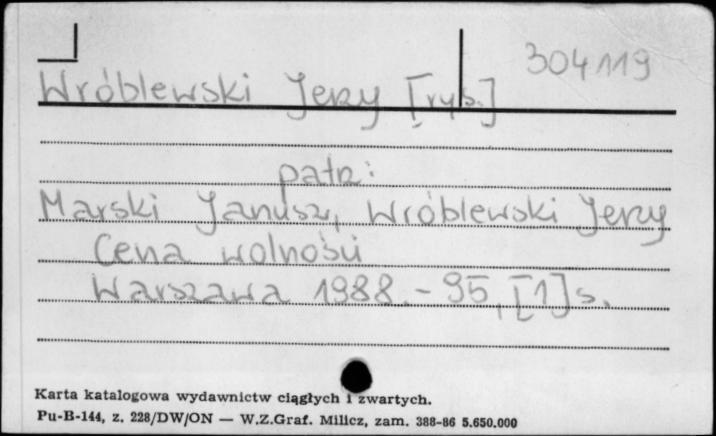 304119
Wróblewski Jerzy [rys.]
patrz:
Marski Janusz, Wróblewski Jerzy
Cena wolności
Warszawa 1988. - 95, [1] s.
Karta katalogowa wydawnictw ciągłych i zwartych.
Pu-B-144, z. 228/DW/ON — W.Z.Graf. Milicz, zam. 388-86 5.650.000